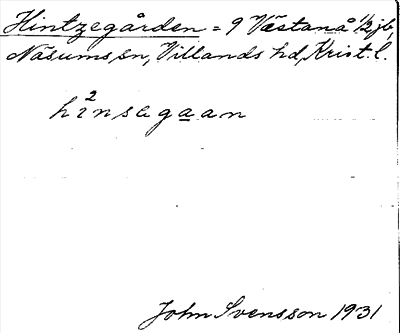 Hintzegården = 9 Västanå 1/2 jb,
Näsums sn, Villands hd, Krist. l.
hi²nsagaan
John Svensson 1931